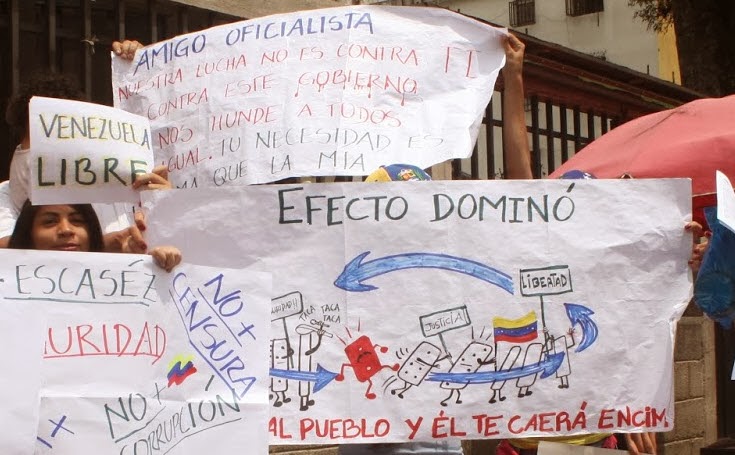 AMIGO OFICIALISTA
NUESTRA LUCHA NO ES CONTRA TI
CONTRA ESTE GOBIERNO
NOS HUNDE A TODOS
IGUAL. TU NECESIDAD ES
MA QUE LA MIA
VENEZUELA
LIBRE
EFECTO DOMINÓ
TACA TACA
TACA
JUSTICIA!
LIBERTAD
AL PUEBLO Y ÉL TE CAERÁ ENCIM
ESCASÉZ
URIDAD
NO +
CENSURA
NO +
CORRUPCIÓN